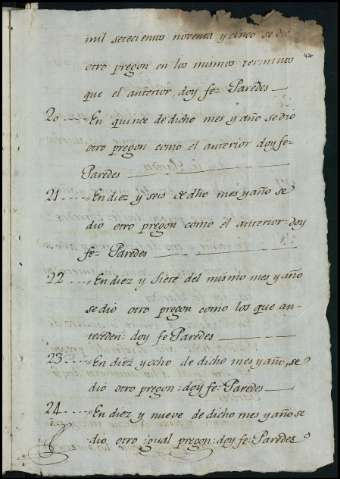 mil setecientos noventa y cinco se dio
otro pregon en los mismos terminos
que el anterior doy fe- Paredes
20 En quince de dicho mes y año se dio
otro pregon como el anterior doy fe-
Paredes
21 En diez y seis de dho mes y año se
dio otro pregon como el anterior doy
fe- Paredes
22 En diez y siete del mismo mes y año
se dio otro pregon como los que an-
teceden: doy fe Paredes
23 En diez y ocho de dicho mes y año, se
dio otro pregon: doy fe: Paredes
24 En diez y nueve de dicho mes y año, se
dio otro igual pregon: doy fe: Paredes